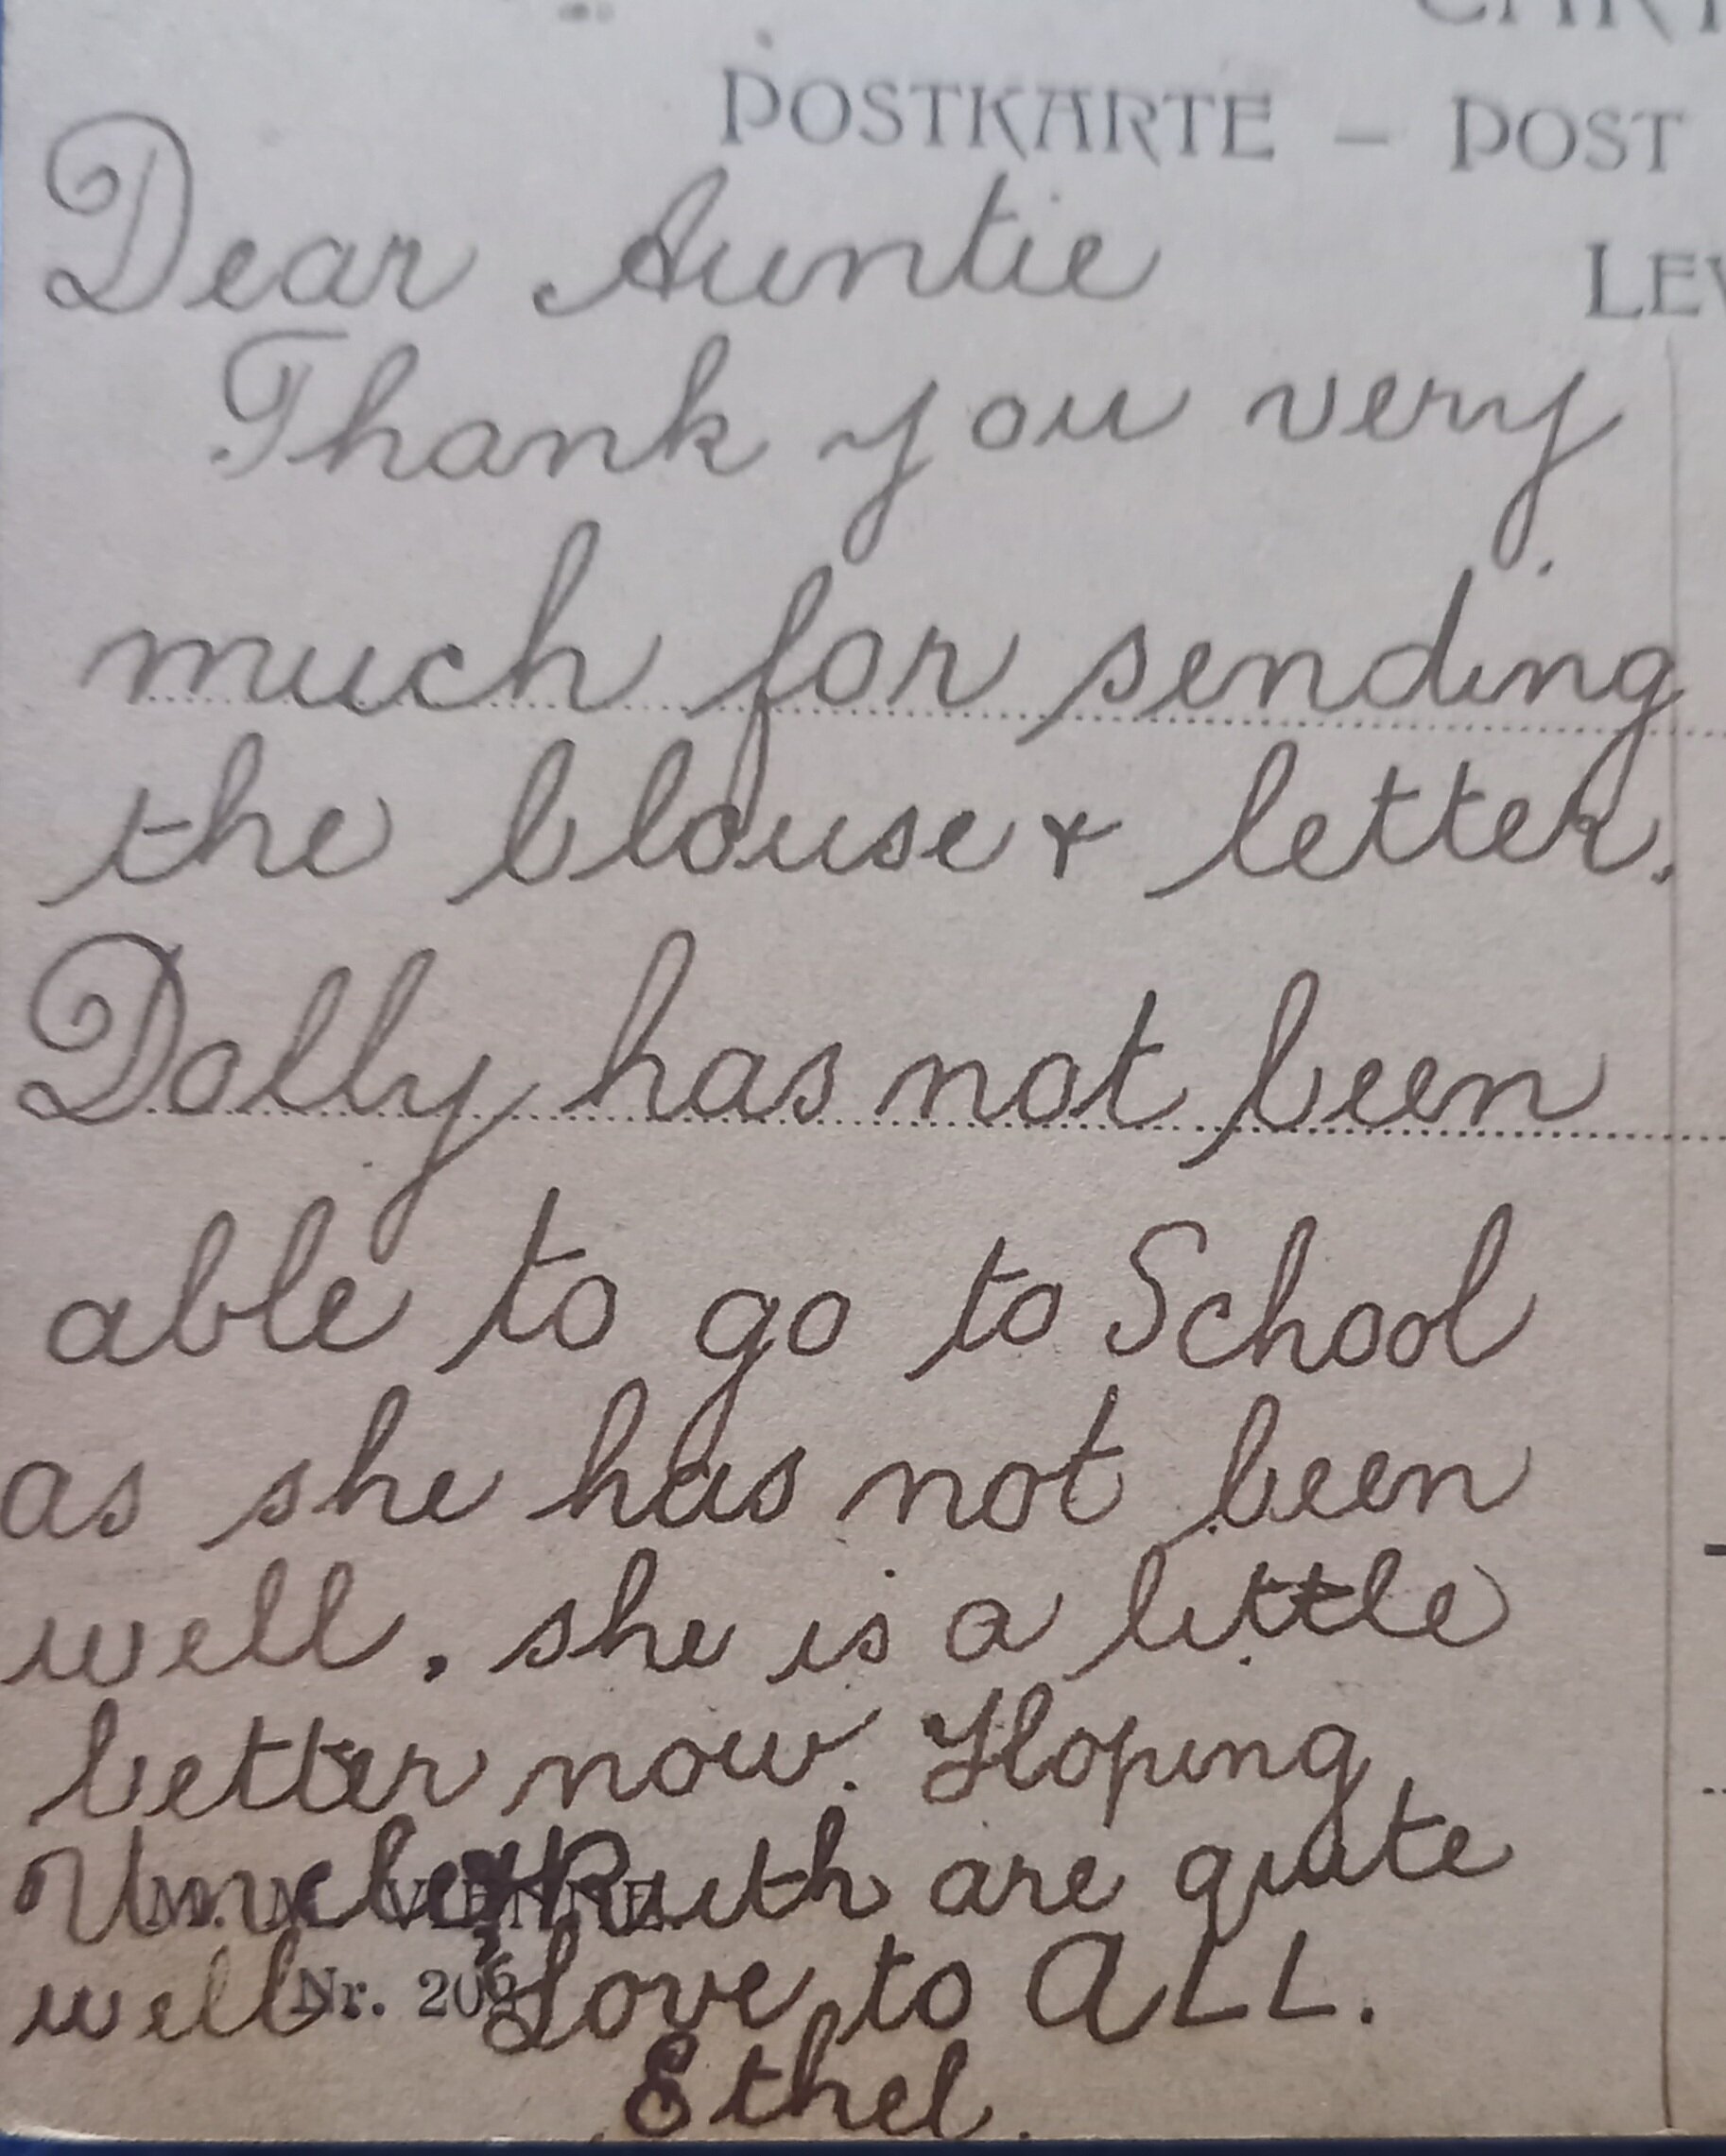 CART
POSTKARTE – POST
LEV
Dear Auntie
Thank you very
much for sending
the blouse & letter.
Dolly has not been
able to go to School
as she has not been
well. she is a little
better now. Hoping
Uncle & Ruth are quite
M.M. VIENNE.
well Love to ALL.
Nr. 206
Ethel.